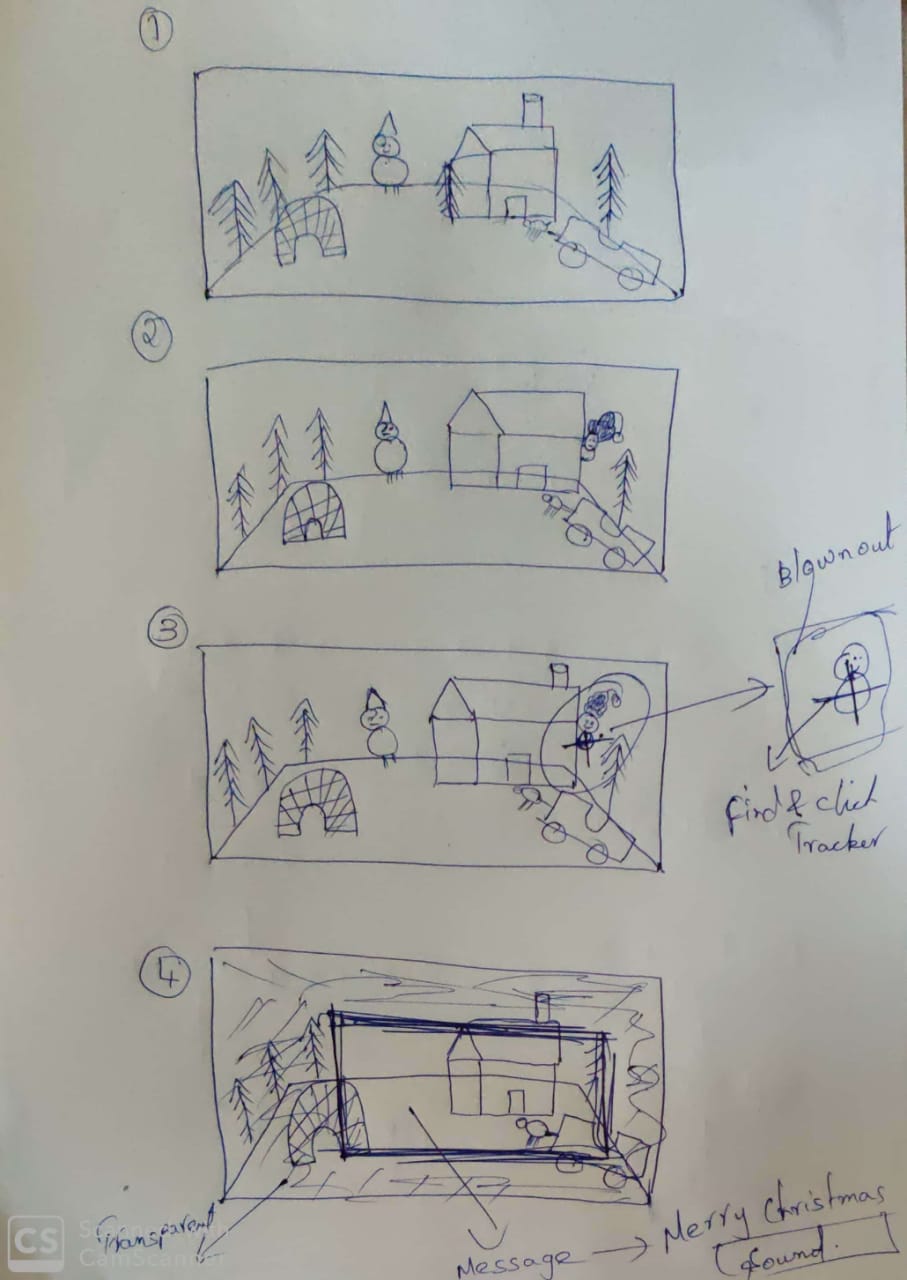 1
2
Blownout
3
Find & click
Tracker
4
Transparent
Message → Merry Christmas
Sound.
CS
Scanned with
CamScanner